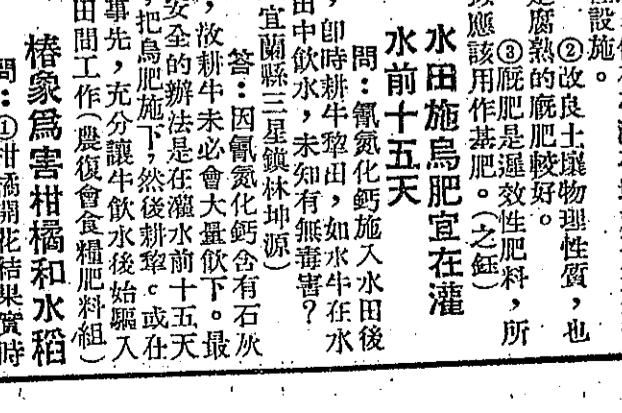 設施。
②改良土壤物理性質，也
是腐熟的廐肥較好。
③廐肥是遲效性肥料，所
應該用作基肥。（之鈺）
水田施烏肥宜在灌
水前十五天
問：氰氮化鈣施入水田後
，卽時耕牛犂田，如水牛在水
田中飲水，未知有無毒害？
宜蘭縣三星鎮林坤源）
答：因氰氮化鈣含有石灰
，故耕牛未必會大量飲下。最
安全的辦法是在灌水前十五天
，把烏肥施下，然後耕犂。或在
事先，充分讓牛飲水後始驅入
田間工作（農復會食糧肥料組）
椿象爲害柑橘和水稻
問：①柑橘開花結果實時